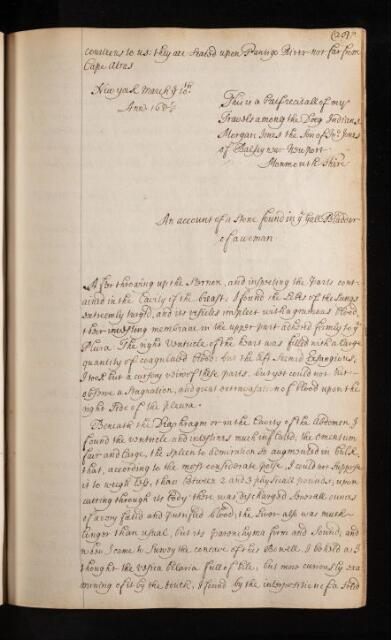 (257)
courteous to us: they are seated upon Pontigo River not far from
Cape Atros
New york March ye 10th
Anno 168 5/6
This is a brief recitall of my
Travels among the Doeg Indians
Morgan Jones the Son of Jno: Jones
of Basleg near Newport
Monmouth shire
An account of a stone found in ye Gall Bladder
of a woman
After throwing up the Sternon, and inspecting the parts cont-
ained in the Cavity of the breast, I found the Lobes of the Lungs
extremly turgid, and its vesicles impleat with a grumous blood,
their investing membrane in the upper part adhered firmly to ye
Plura. The right Ventricle of the heart was filled with a large
quantity of coagulated blood: but the left seemed
I took but a cursory view of these parts, but yet could not but
observe a stagnation, and great extravasation of blood upon the
right side of the pleura.
Beneath the Diaphragm or in the Cavity of the Abdomen I
found the ventricle and intestines much inflated, the omentum
fair and large, the spleen to admiration so augmented in bulk,
that, according to the most considerate poise, I could not suppose
it to weigh less, than betwixt 2 and 3 physicall pounds; upon
cutting through its body there was discharged severall ounces
of a very fatid and putrified blood; the liver also was much
larger than usual, but its parenchyma firm and sound, and
when I come to survey the concave of this Bowell, I behold as I
thought the vesica bilaria full of bile, but more curiously exa
mining of it by the touch, I found by the interposition of a solid